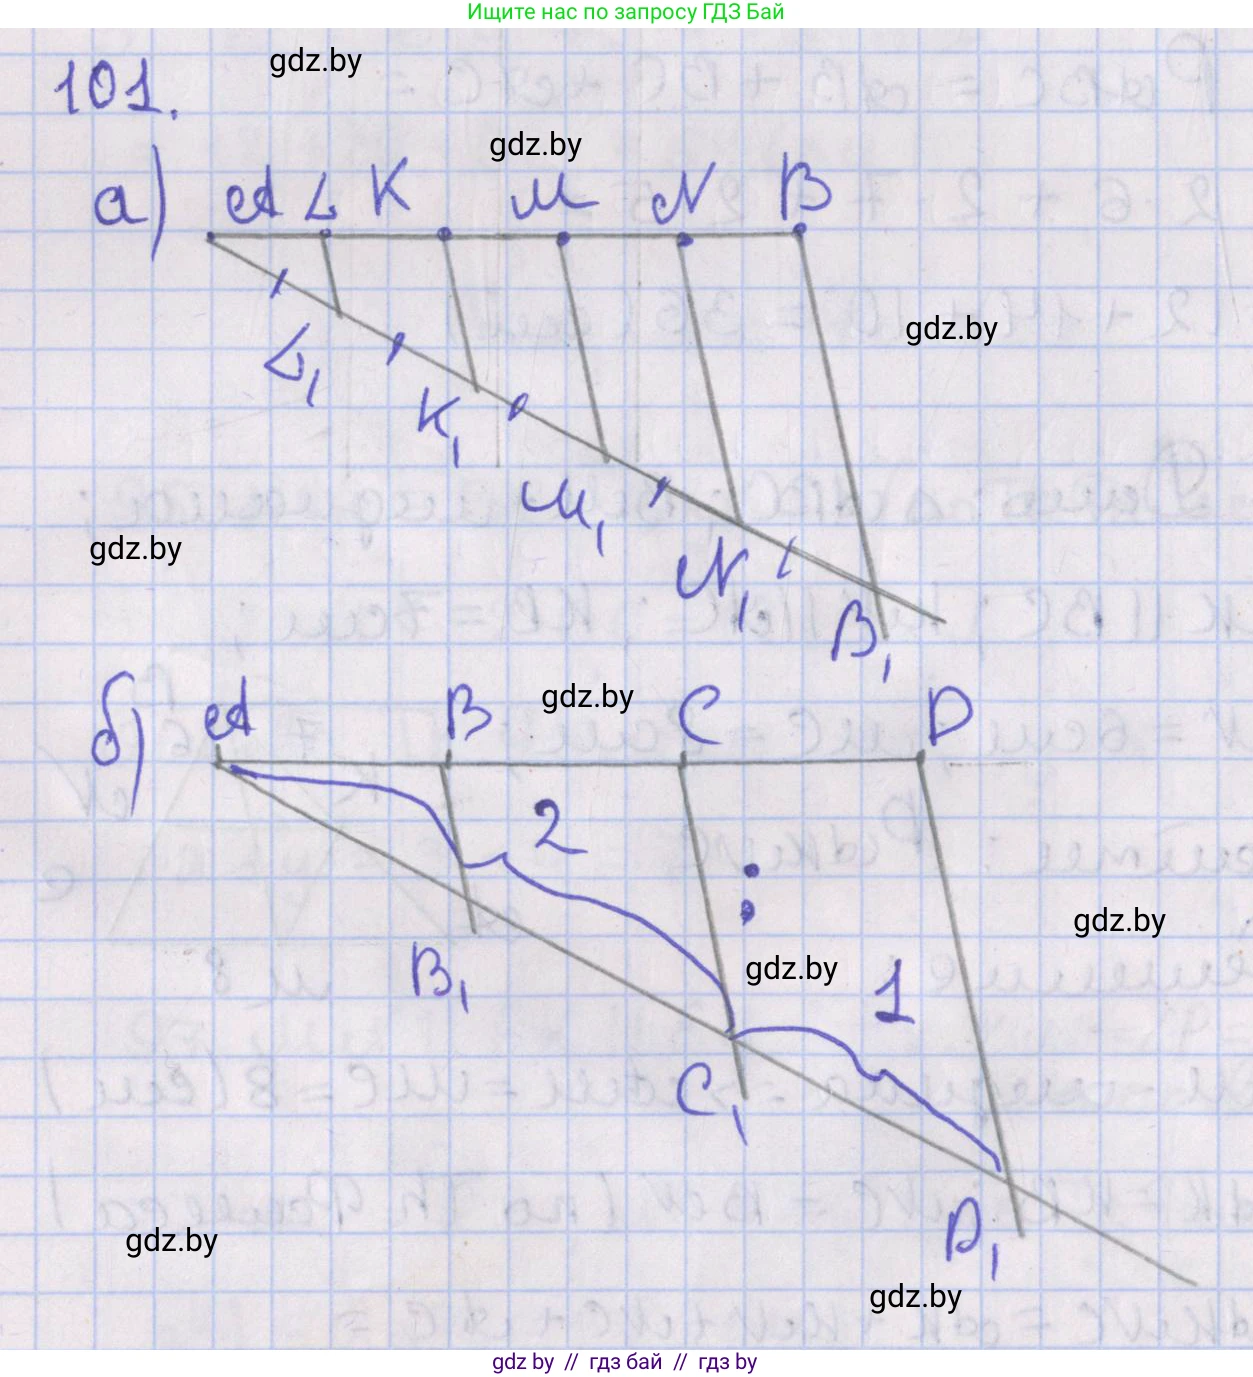 Ищите нас по запросу ГДЗ Бай
gdz.by
101.
gdz.by
а) A L K M N B
gdz.by
L₁
K₁
M₁
gdz.by
N₁
B₁
gdz.by
б) A B C D
2
:
gdz.by
gdz.by
B₁
1
C₁
D₁
gdz.by
gdz.by
gdz by // гдз бай // гдз by